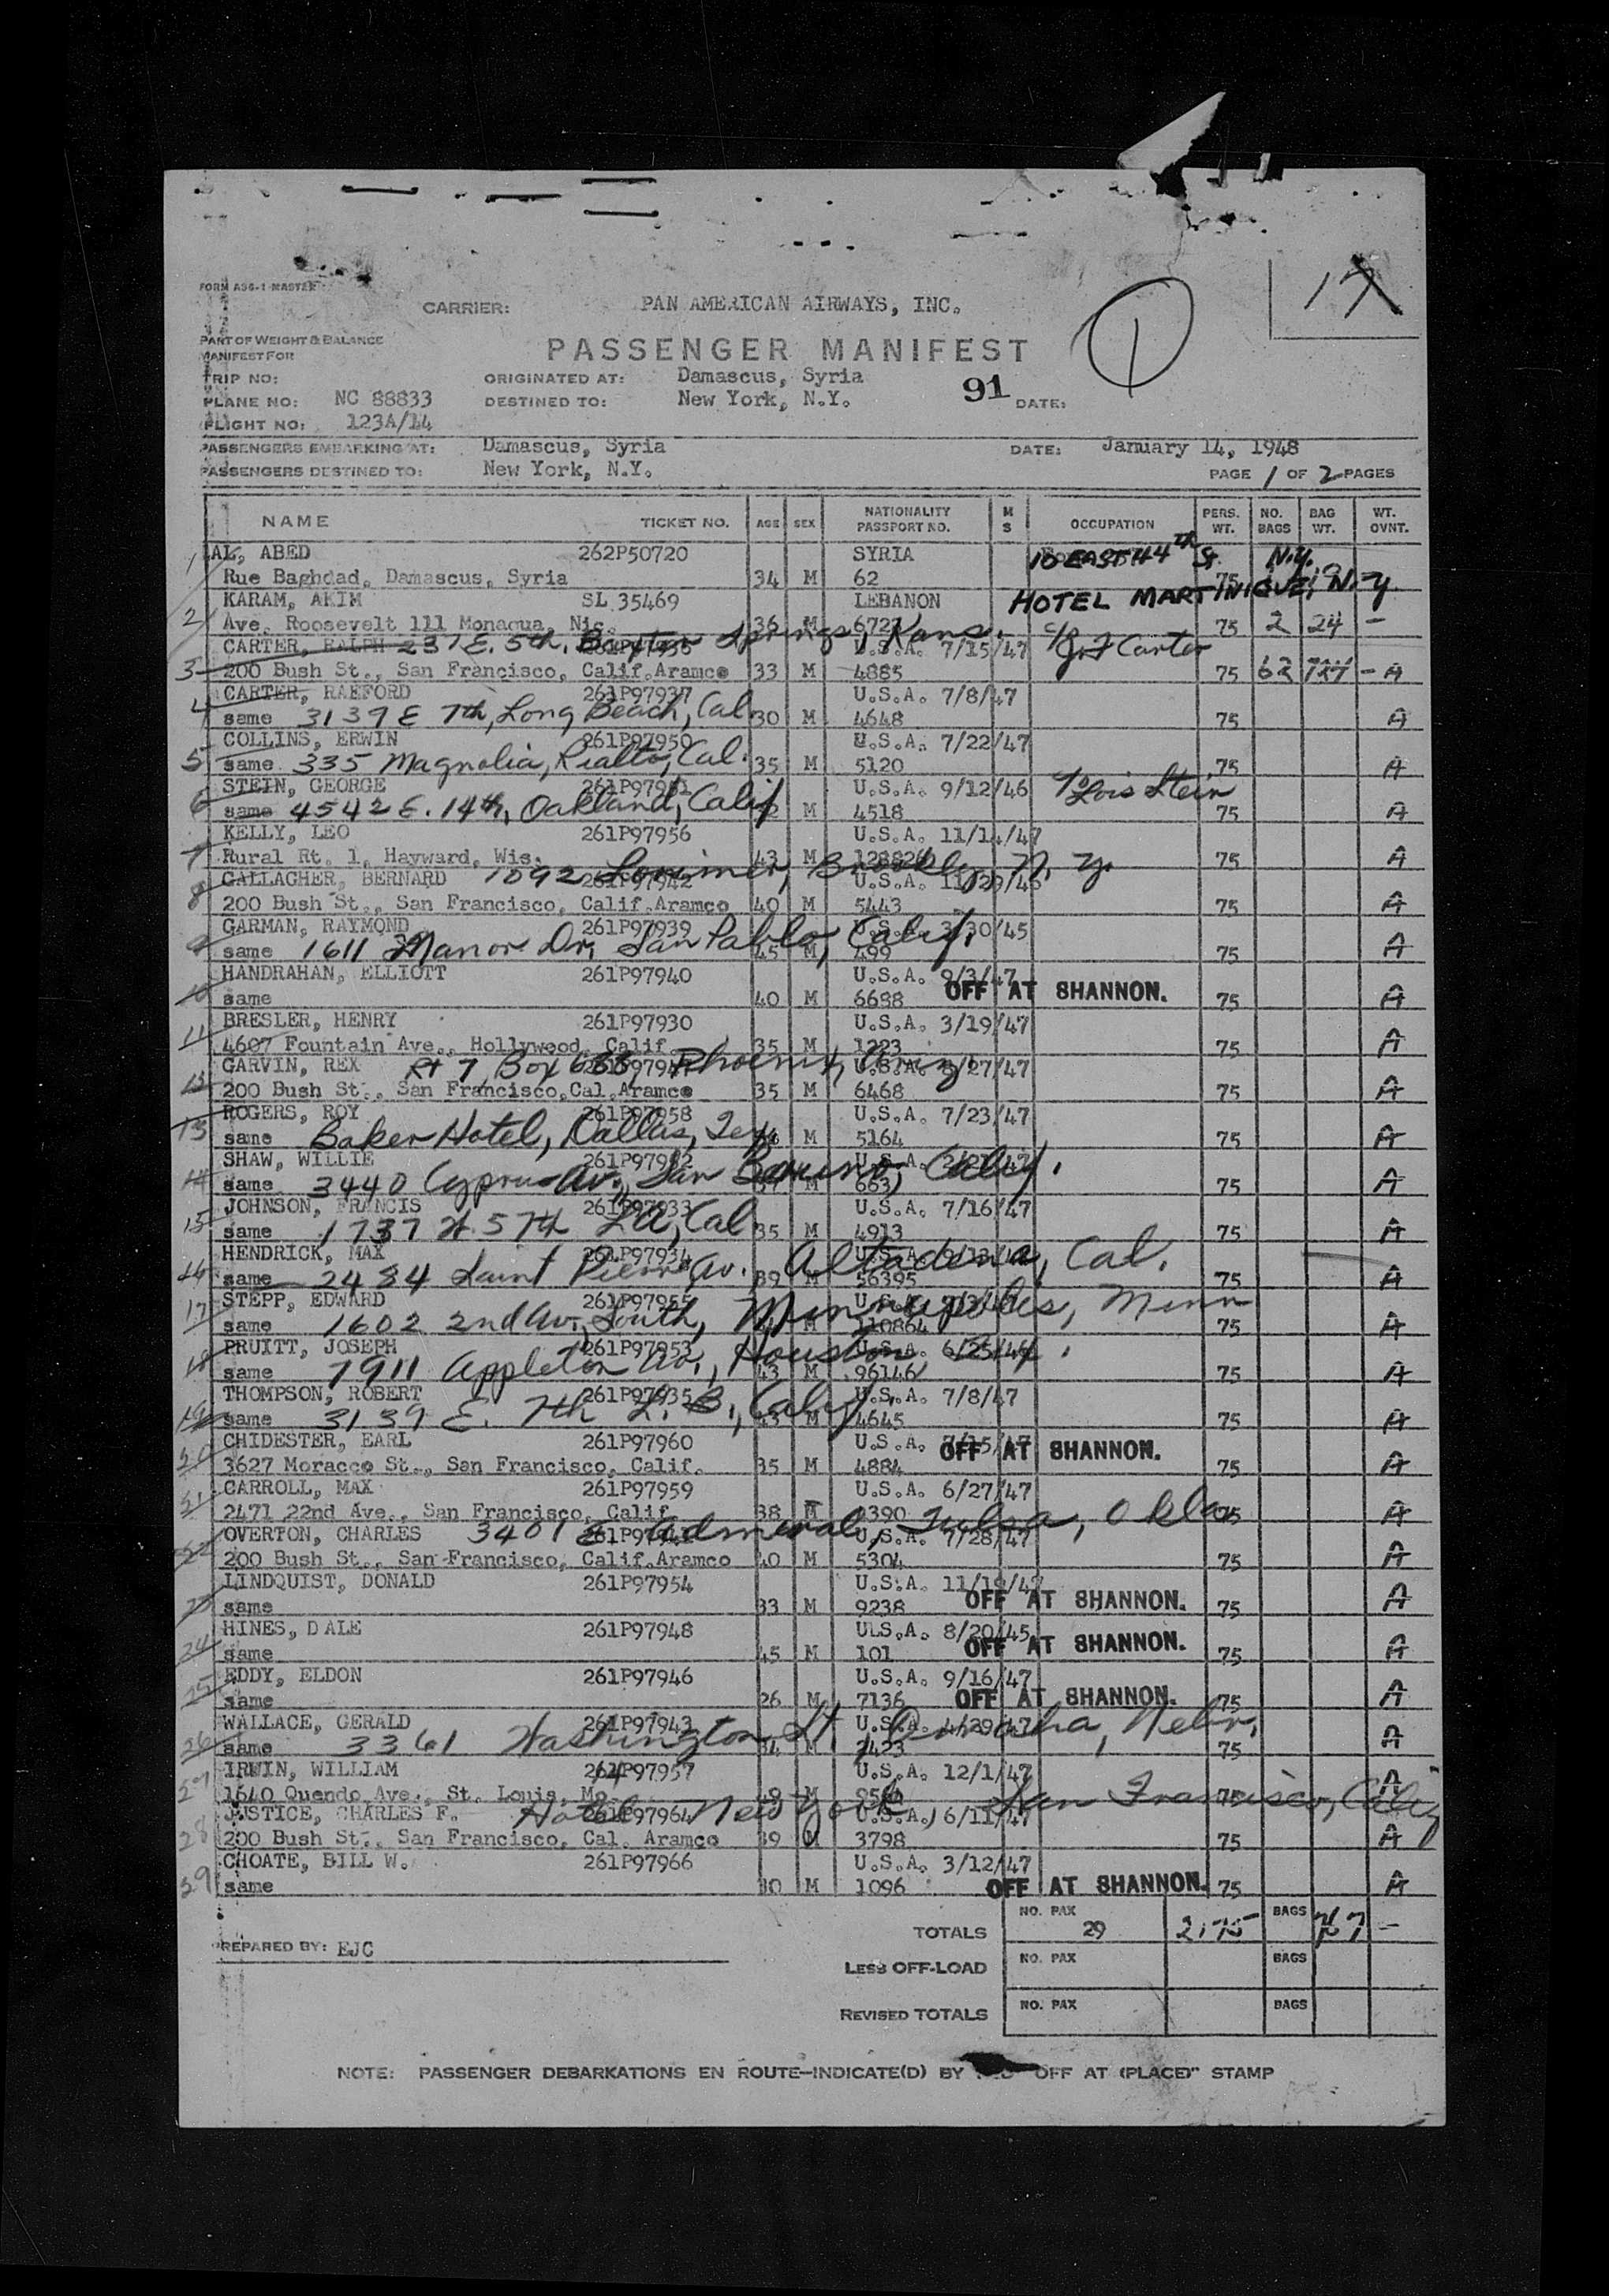 FORM A96-1 MASTER
17
CARRIER: PAN AMERICAN AIRWAYS, INC.
1
PART OF WEIGHT & BALANCE
MANIFEST FOR
PASSENGER MANIFEST
TRIP NO: ORIGINATED AT: Damascus, Syria
PLANE NO: NC 88833 DESTINED TO: New York, N.Y. 91 DATE:
FLIGHT NO: 123A/14
PASSENGERS EMBARKING AT: Damascus, Syria DATE: January 14, 1948
PASSENGERS DESTINED TO: New York, N.Y. PAGE 1 OF 2 PAGES
NAME TICKET NO. AGE SEX NATIONALITY PASSPORT NO. M S OCCUPATION PERS. WT. NO. BAGS BAG WT. WT. OVNT.
1 AL, ABED 262P50720 SYRIA 10 EAST 44th St. N.Y.
Rue Baghdad, Damascus, Syria 34 M 62 75
2 KARAM, AKIM SL 35469 LEBANON HOTEL MARTINIQUE, N.Y.
Ave. Roosevelt 111 Monaqua, Nic. 36 M 6727 75 2 24 -
CARTER, RALPH 237 E. 5th, Baxter Springs, Kans. U.S.A. 7/15/47 c/o J.F. Carter
3 200 Bush St., San Francisco, Calif.Aramco 33 M 4885 75 62 - A
4 CARTER, RAEFORD 261P97937 U.S.A. 7/8/47
same 3139 E 7th, Long Beach, Cal. 30 M 4648 75 A
COLLINS, ERWIN 261P97950 U.S.A. 7/22/47
5 same 335 Magnolia, Rialto, Cal. 35 M 5120 75 A
STEIN, GEORGE U.S.A. 9/12/46 c/o Lois Stein
6 same 4542 E. 14th, Oakland, Calif M 4518 75 A
KELLY, LEO 261P97956 U.S.A. 11/14/47
7 Rural Rt. 1, Hayward, Wis. 43 M 75 A
GALLAGHER, BERNARD 1092 Lorimer, Brooklyn, N.Y. 261P97942 U.S.A.
8 200 Bush St., San Francisco, Calif.Aramco 40 M 5443 75 A
GARMAN, RAYMOND 261P97939 U.S.A. 3/30/45
9 same 1611 Manor Dr, San Pablo, Calif. 45 M 499 75 A
HANDRAHAN, ELLIOTT 261P97940 U.S.A. 9/3/47
10 same 40 M 6688 OFF AT SHANNON. 75 A
BRESLER, HENRY 261P97930 U.S.A. 3/19/47
11 4607 Fountain Ave., Hollywood, Calif. 35 M 1223 75 A
GARVIN, REX Rt 7, Box 688, Phoenix, Ariz. U.S.A.
12 200 Bush St., San Francisco,Cal.Aramco 35 M 6468 75 A
ROGERS, ROY 261P97958 U.S.A. 7/23/47
13 same Baker Hotel, Dallas, Tex. M 5164 75 A
SHAW, WILLIE U.S.A.
14 same 3440 Cyprus Av., San Bruno, Calif. M 663 75 A
JOHNSON, FRANCIS 261P97933 U.S.A. 7/16/47
15 same 1737 W. 57th LA, Cal 35 M 4913 75 A
HENDRICK, MAX 261P97934 U.S.A.
16 same 2484 Saint Pierre Av. Altadena, Cal. 39 M 56395 75 A
STEPP, EDWARD 261P97955 U.S.A.
17 same 1602 2nd Av., South, Minneapolis, Minn M 110864 75 A
PRUITT, JOSEPH 261P97953 U.S.A. 6/25/46
18 same 7911 Appleton Av., Houston Tex. 43 M 96146 75 A
THOMPSON, ROBERT 261P97935 U.S.A. 7/8/47
19 same 3139 E. 7th L.B., Calif. 43 M 4645 75 A
CHIDESTER, EARL 261P97960 U.S.A. 7/15/47
20 3627 Moracco St., San Francisco, Calif. 35 M 4884 OFF AT SHANNON. 75 A
CARROLL, MAX 261P97959 U.S.A. 6/27/47
21 2471 22nd Ave., San Francisco, Calif. 38 M 75 A
OVERTON, CHARLES 3401 E Admiral, Tulsa, Okla U.S.A. 7/28/47
22 200 Bush St., San Francisco, Calif.Aramco 40 M 5304 75 A
LINDQUIST, DONALD 261P97954 U.S.A. 11/19/47
23 same 33 M 9238 OFF AT SHANNON. 75 A
HINES, DALE 261P97948 ULS.A. 8/20/45
24 same 45 M 101 OFF AT SHANNON. 75 A
EDDY, ELDON 261P97946 U.S.A. 9/16/47
25 same 26 M 7136 OFF AT SHANNON. 75 A
WALLACE, GERALD 261P97943 U.S.A. 4/29/47
26 same 3361 Washington St., Omaha, Nebr. 34 M 2423 75 A
IRWIN, WILLIAM 261P97957 U.S.A. 12/1/47
27 1640 Quendo Ave., St. Louis, Mo. M 75 A
JUSTICE, CHARLES F. Hotel New York San Francisco, Calif 261P97964 U.S.A. 6/11/47
28 200 Bush St., San Francisco, Cal. Aramco 39 M 3798 75 A
CHOATE, BILL W. 261P97966 U.S.A. 3/12/47
29 same 30 M 1096 OFF AT SHANNON. 75 A
TOTALS NO. PAX 29 2175 BAGS -
PREPARED BY: EJC
LESS OFF-LOAD NO. PAX BAGS
REVISED TOTALS NO. PAX BAGS
NOTE: PASSENGER DEBARKATIONS EN ROUTE—INDICATE(D) BY OFF AT (PLACE)" STAMP